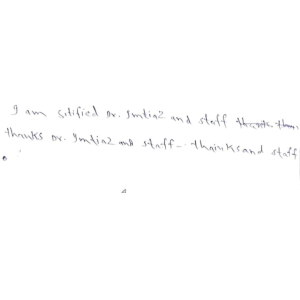 I am sitified Dr. Imtiaz and staff thanks than
thanks Dr. Imtiaz and staff - thainks and staff